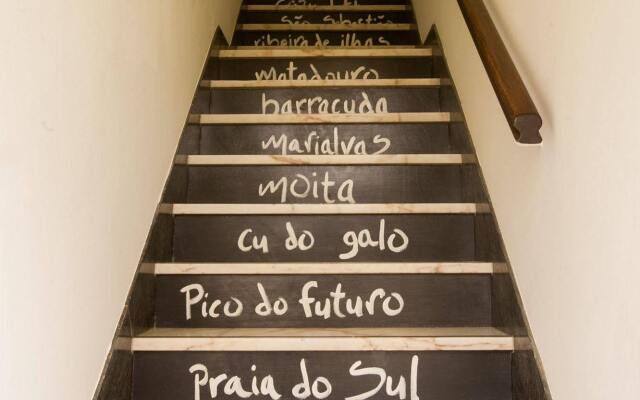 São Sebastião
ribeira de ilhas
Matadouro
barracuda
Marialvas
MOita
cu do galo
Pico do futuro
Praia do Sul